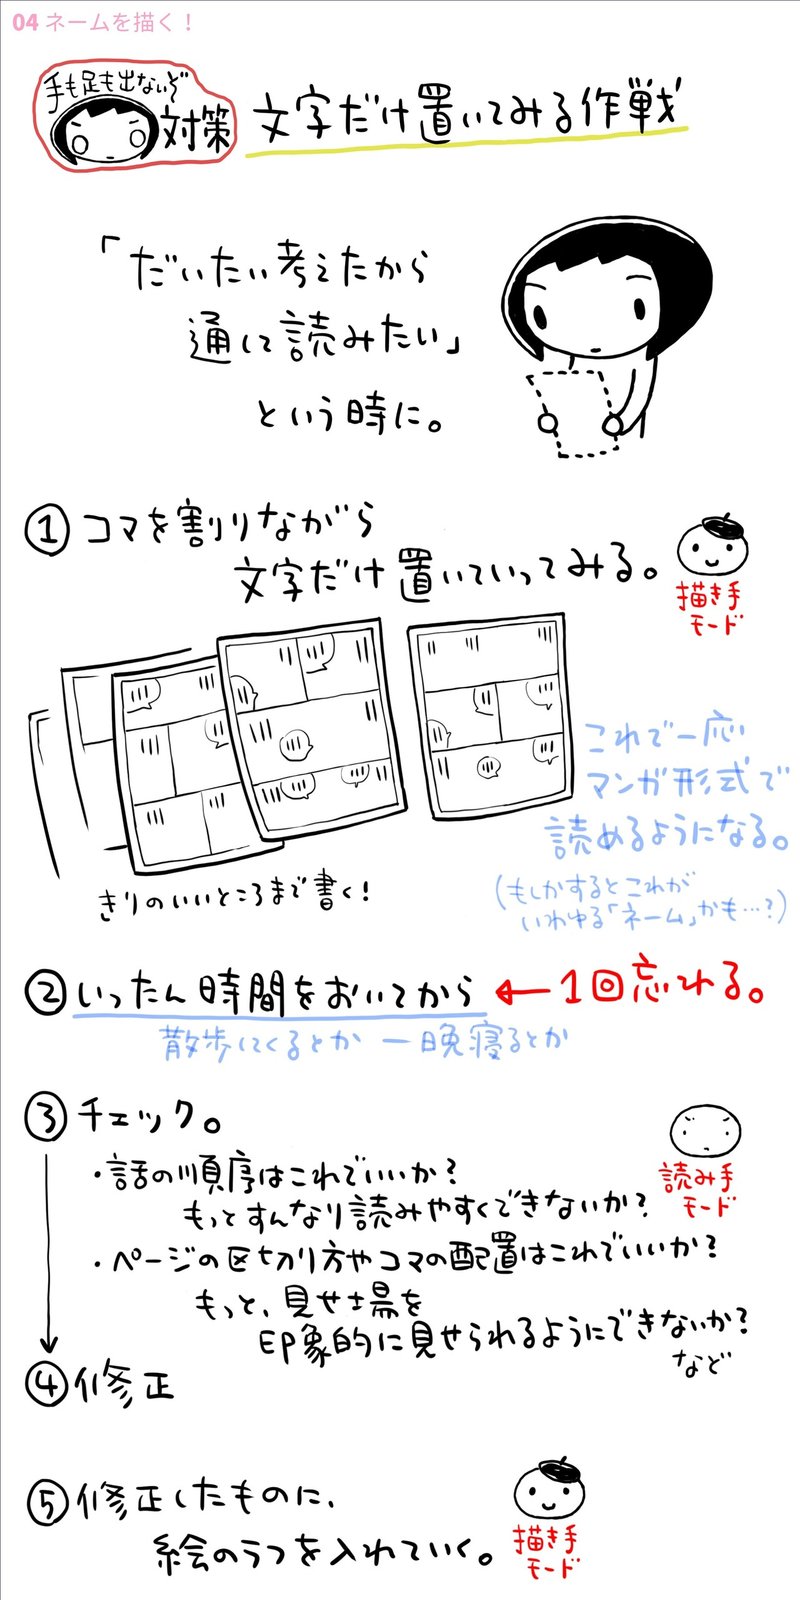 04 ネームを描く！
手も足も出ないぞ
対策
文字だけ置いてみる作戦
「だいたい考えたから
通して読みたい」
という時に。
① コマを割りながら
文字だけ置いていってみる。
描き手
モード
これで一応
マンガ形式で
読めるようになる。
(もしかするとこれが
いわゆる「ネーム」かも…?)
きりのいいところまで書く!
② いったん時間をおいてから ← 1回忘れる。
散歩してくるとか 一晩寝るとか
③ チェック。
読み手
モード
・話の順序はこれでいいか?
もっとすんなり読みやすくできないか?
・ページの区切り方やコマの配置はこれでいいか?
もっと、見せ場を
印象的に見せられるようにできないか?
など
④ 修正
⑤ 修正したものに、
絵のラフを入れていく。
描き手
モード